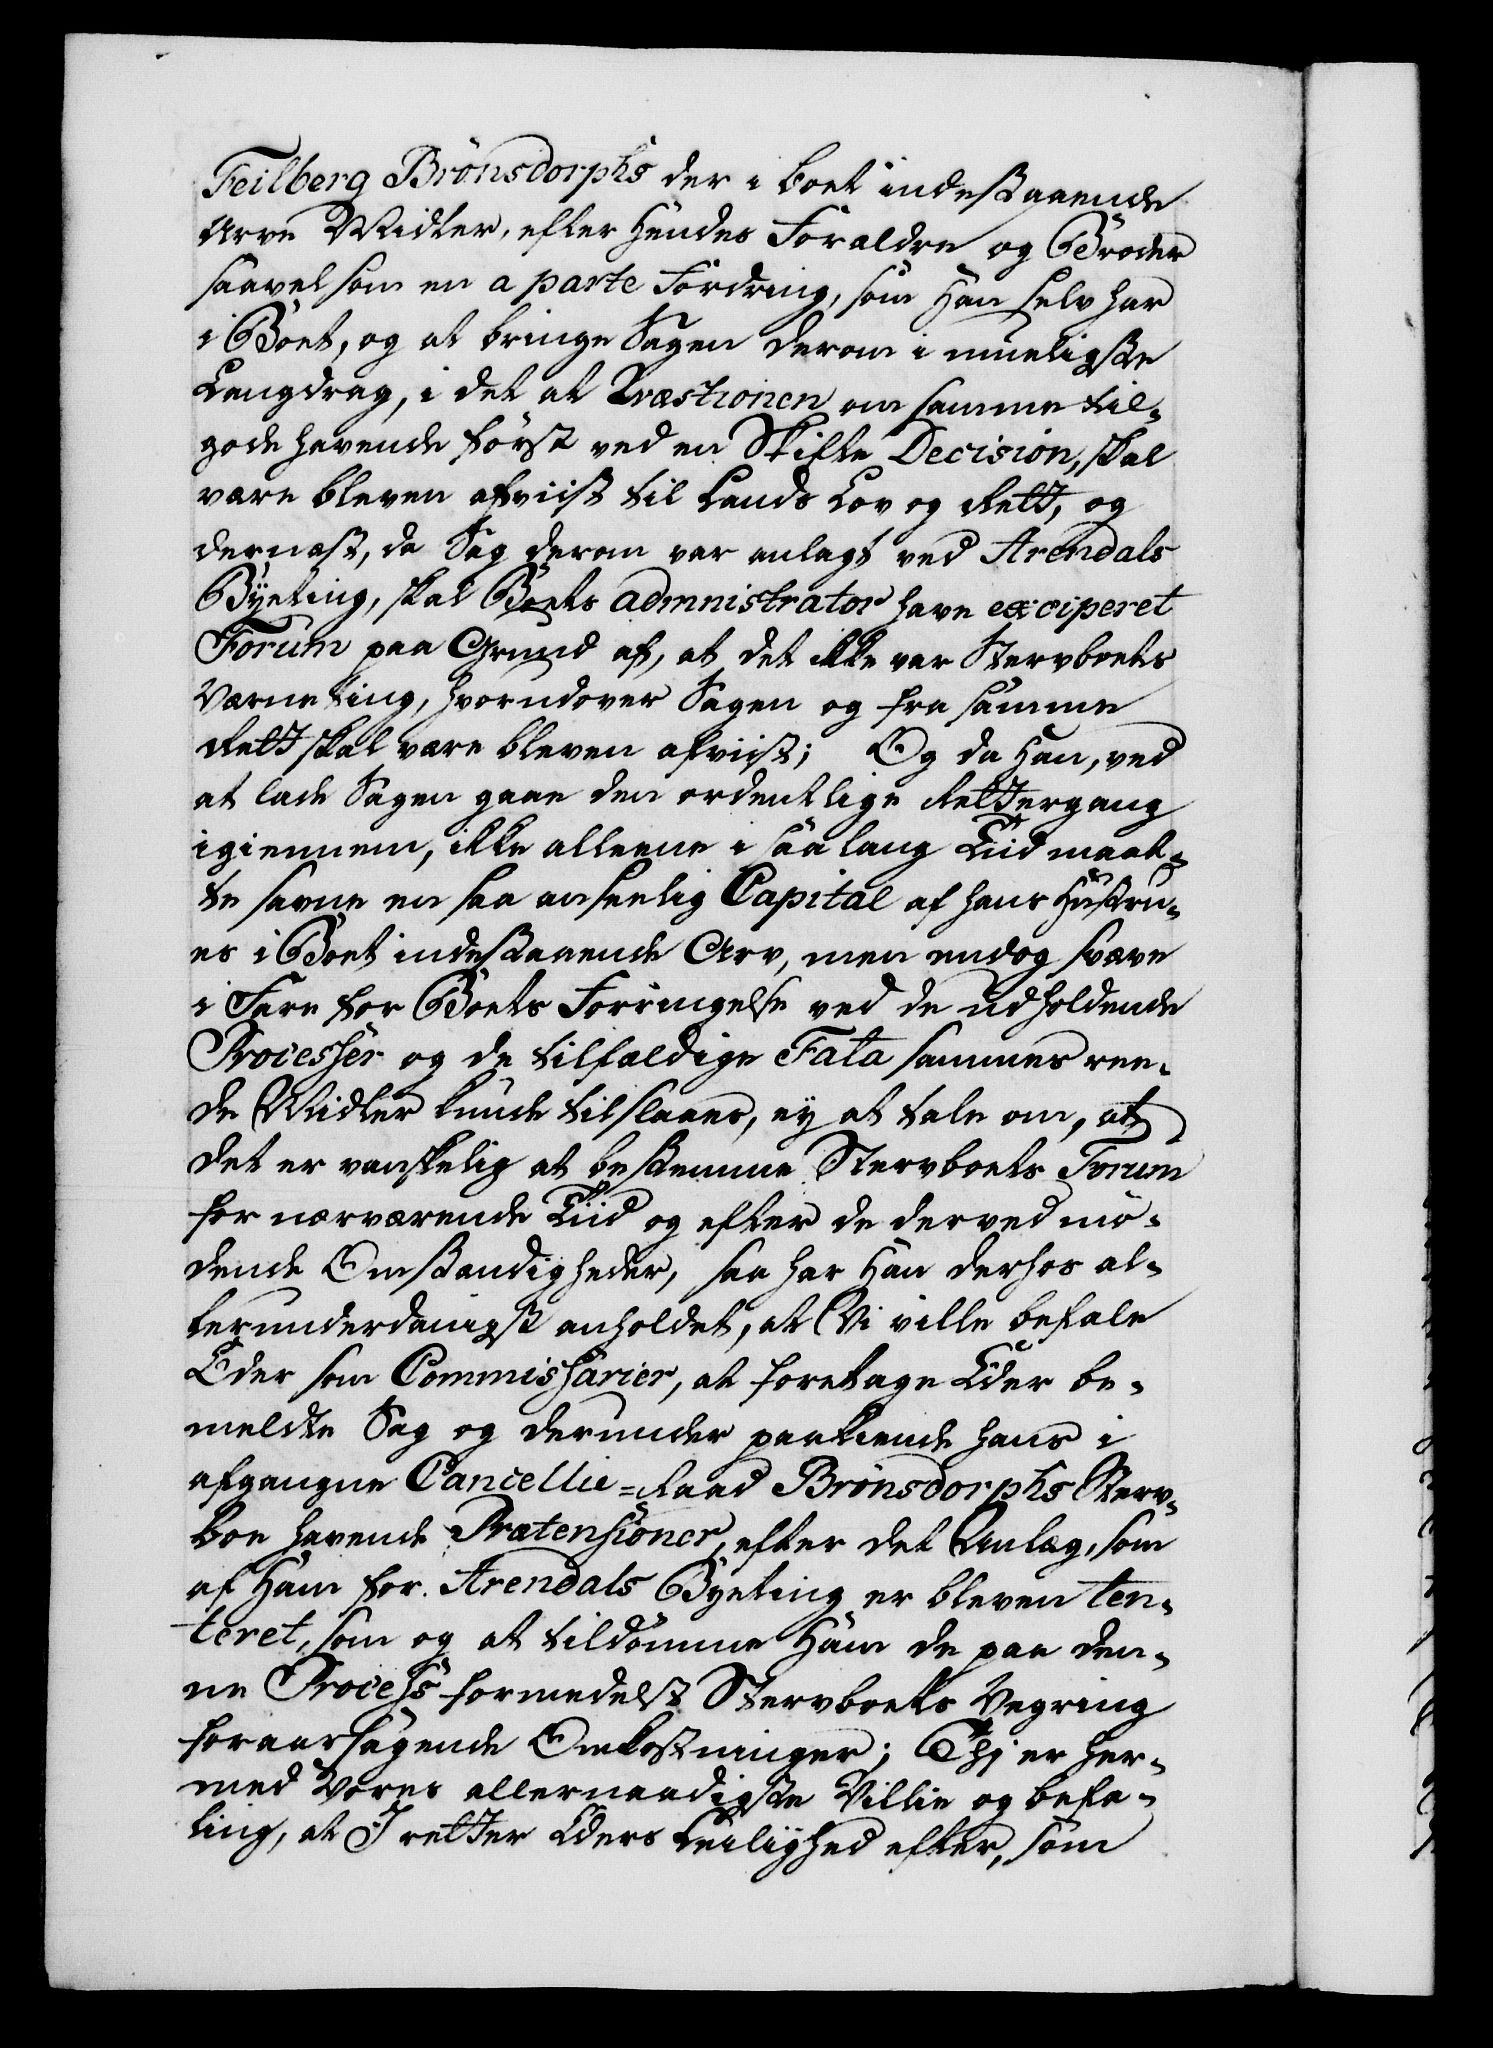 Feilberg Brönsdorphs der i boet indestaaende
Arve Midler, efter Hendes Forældre og Broder
saavelsom en a parte Fordring, som Han selv har
i Boet, og at bringe Sagen derom i mueligste
Langdrag, i det at Qvæstionen om samme til-
gode havende först ved en Skifte Decision, skal
være bleven afviist til Lands Lov og Rett, og
dernæst, da Sag derom var anlagt ved Arendals
Byeting, skal Boets admnistrator have exciperet
Forum paa Grund af, at det ikke var Stervboets
Værneting, hvorudover Sagen og fra samme
Rett skal være bleven afviist; Og da Han, ved
at lade Sagen gaae den ordentlige Rettergang
igiennem, ikke alleene i saa lang Tiid maat-
te savne en saa anseelig Capital af hans Hustru-
es i Boet indestaaende Arv, men endog svæve
i Fare for Boets Forringelse ved de udholdende
Processer og de tilfældige Fata sammes ree-
de Midler kunde tilslaaes, ey at tale om, at
det er vanskelig at bestemme Stervboets Forum
for nærværende Tiid og efter de derved mö-
dende Omstændigheder, saa har Han derhos al-
lerunderdanigst anholdet, at Vi ville befale
Eder som Commissarier, at foretage Eder be-
meldte Sag og derunder paakiende hans i
afgangne Cancellie-Raad Brönsdorphs Sterv-
boe havende Prætensioner, efter det Anlæg, som
af Ham for Arendals Byeting er bleven ten-
teret, som og at tildömme Ham de paa den-
ne Process formedelst Stervboets Vegring
foraarsagende Omkostninger; Thj er her-
med Vores allernaadigste Villie og befa-
ling, at I retter Eders Leilighed efter, som